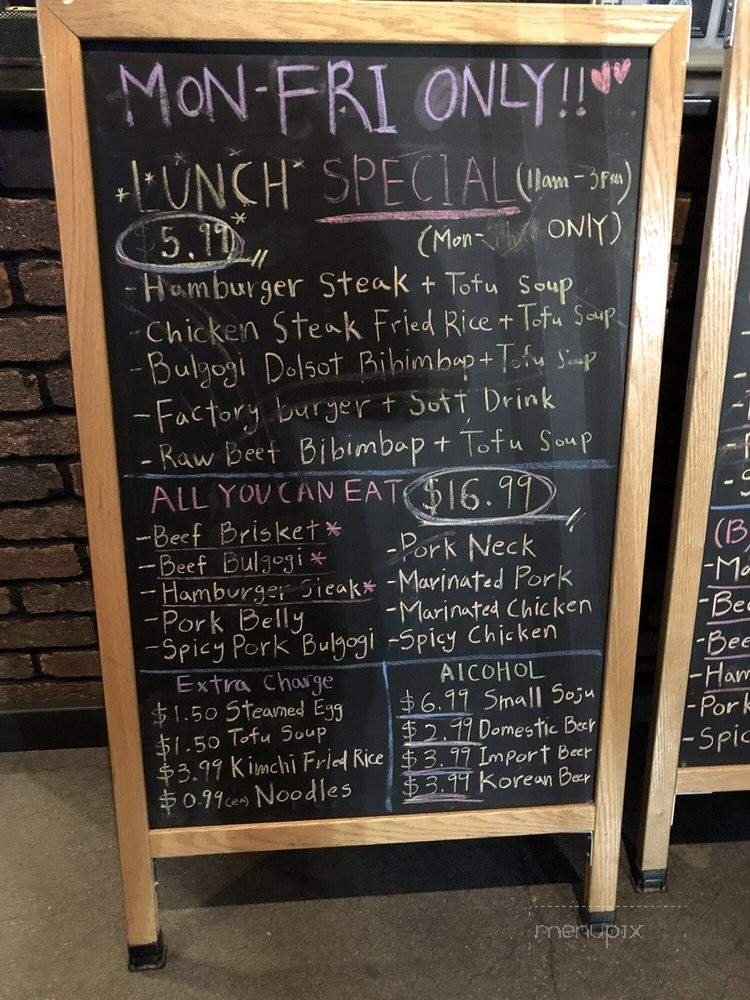 MON-FRI ONLY!!
LUNCH SPECIAL (11am-3pm)
$5.99 (Mon- ONLY)
- Hamburger Steak + Tofu Soup
- Chicken Steak Fried Rice + Tofu Soup
- Bulgogi Dolsot Bibimbap + Tofu Soup
- Factory burger + Soft Drink
- Raw Beef Bibimbap + Tofu Soup
ALL YOU CAN EAT $16.99
- Beef Brisket *
- Beef Bulgogi *
- Hamburger Steak *
- Pork Belly
- Spicy Pork Bulgogi
- Pork Neck
- Marinated Pork
- Marinated Chicken
- Spicy Chicken
Extra Charge
$1.50 Steamed Egg
$1.50 Tofu Soup
$3.99 Kimchi Fried Rice
$0.99 (ea) Noodles
AlCOHOL
$6.99 Small Soju
$2.99 Domestic Beer
$3.99 Import Beer
$3.99 Korean Beer
menupix